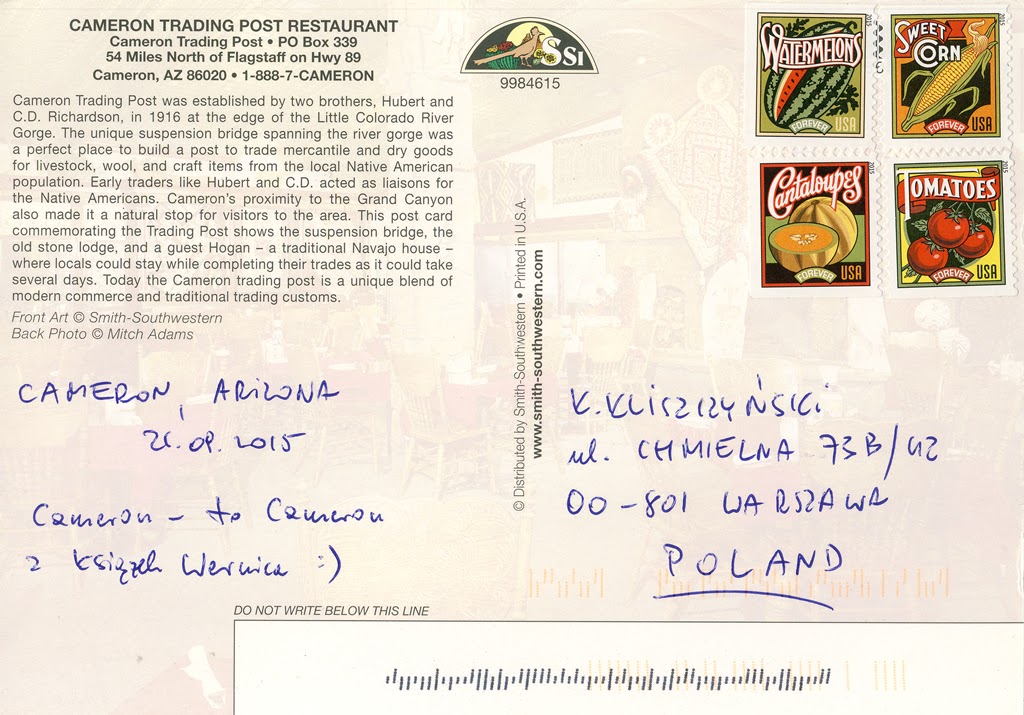 CAMERON TRADING POST RESTAURANT
Cameron Trading Post • PO Box 339
54 Miles North of Flagstaff on Hwy 89
Cameron, AZ 86020 • 1-888-7-CAMERON
Cameron Trading Post was established by two brothers, Hubert and
C.D. Richardson, in 1916 at the edge of the Little Colorado River
Gorge. The unique suspension bridge spanning the river gorge was
a perfect place to build a post to trade mercantile and dry goods
for livestock, wool, and craft items from the local Native American
population. Early traders like Hubert and C.D. acted as liaisons for
the Native Americans. Cameron's proximity to the Grand Canyon
also made it a natural stop for visitors to the area. This post card
commemorating the Trading Post shows the suspension bridge, the
old stone lodge, and a guest Hogan – a traditional Navajo house –
where locals could stay while completing their trades as it could take
several days. Today the Cameron trading post is a unique blend of
modern commerce and traditional trading customs.
Front Art © Smith-Southwestern
Back Photo © Mitch Adams
CAMERON, ARIZONA
2015
Cameron – to Cameron
z książek Wernica :)
SSI
9984615
© Distributed by Smith-Southwestern • Printed in U.S.A.
www.smith-southwestern.com
WATERMELONS
FOREVER USA
2015
SWEET CORN
FOREVER USA
2015
Cantaloupes
FOREVER USA
2015
TOMATOES
FOREVER USA
2015
K. KLISZCZYŃSKI
ul. CHMIELNA 73B/42
00-801 WARSZAWA
POLAND
DO NOT WRITE BELOW THIS LINE